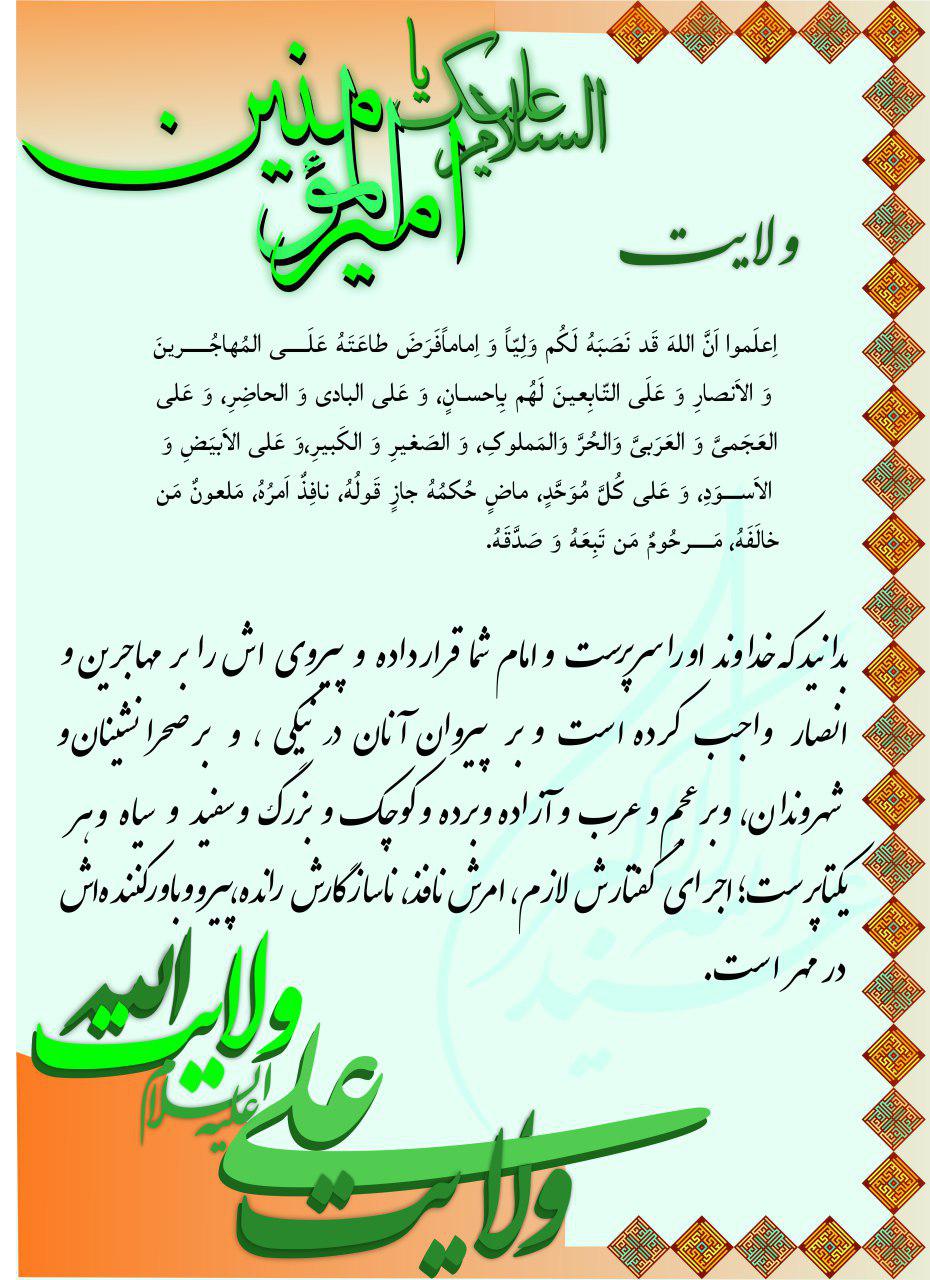 السلام علیک یا
امیرالمؤمنین
ولایت
اِعلَموا اَنَّ اللهَ قَد نَصَبَهُ لَکُم وَلِیّاً وَ اِماماًفَرَضَ طاعَتَهُ عَلَـــی المُهاجُـــرینَ
وَ الاَنصارِ وَ عَلَی التّابِعینَ لَهُم بِاِحسانٍ، وَ عَلی البادی وَ الحاضِرِ، وَ عَلی
العَجَمیَّ وَ العَرَبیَّ وَالحُرَّ وَالمَملوکِ، وَ الصَغیرِ وَ الکَبیرِ،وَ عَلی الاَبیَضِ وَ
الاَســـوَدِ، وَ عَلی کُلَّ مُوَحَّدٍ، ماضٍ حُکمُهُ جازٍ قَولُهُ، نافِذٌ اَمرُهُ، مَلعونٌ مَن
خالَفَهُ، مَـــرحُومٌ مَن تَبِعَهُ وَ صَدَّقَهُ.
بدانید که خداوند او را سرپرست و امام شما قرار داده و پیروی اش را بر مهاجرین و
انصار واجب کرده است و بر پیروان آنان در نیکی ، و بر صحرا نشینان و
شهروندان، و بر عجم و عرب و آزاده و برده و کوچک و بزرگ و سفید و سیاه و هر
یکتاپرست؛ اجرای گفتارش لازم، امرش نافذ، ناسازگارش رانده،پیرو و باور کننده اش
در مهر است.
ولایت الله
ولایت علی علیه السلام